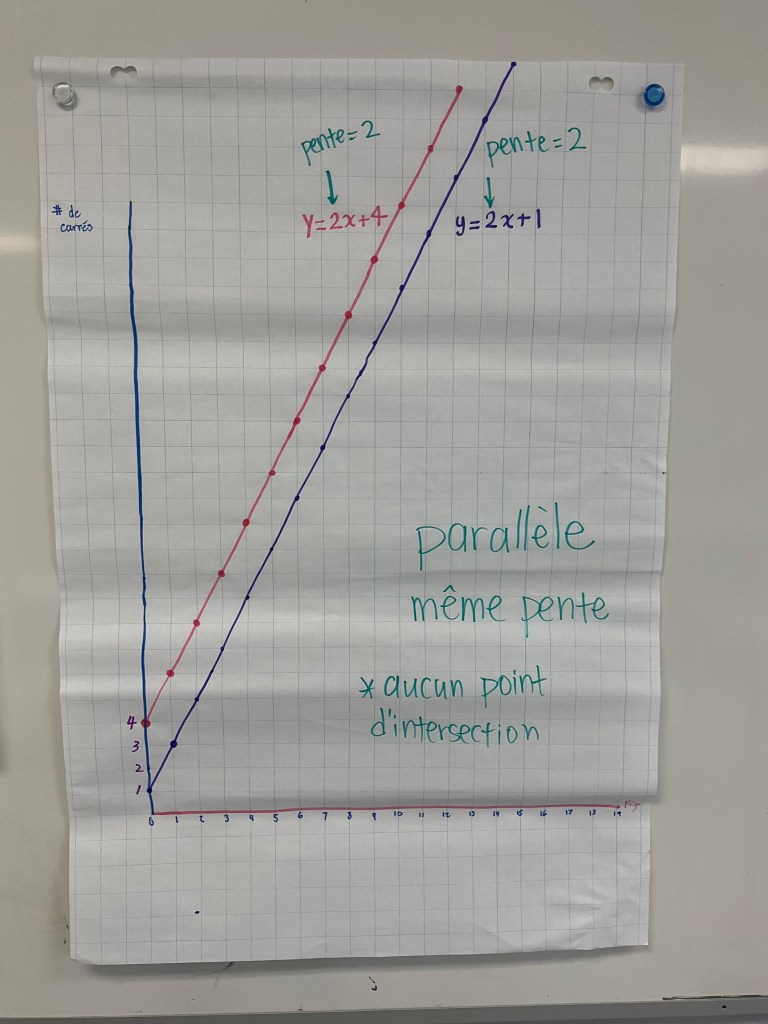 pente=2
pente=2
# de
carrés
y=2x+4
y=2x+1
parallèle
même pente
*aucun point
d'intersection
4
3
2
1
0 1 2 3 4 5 6 7 8 9 10 11 12 13 14 15 16 17 18 19